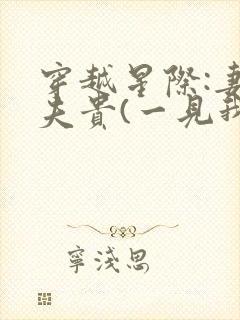 穿越星際:妻
夫貴(一見我
寧淺思